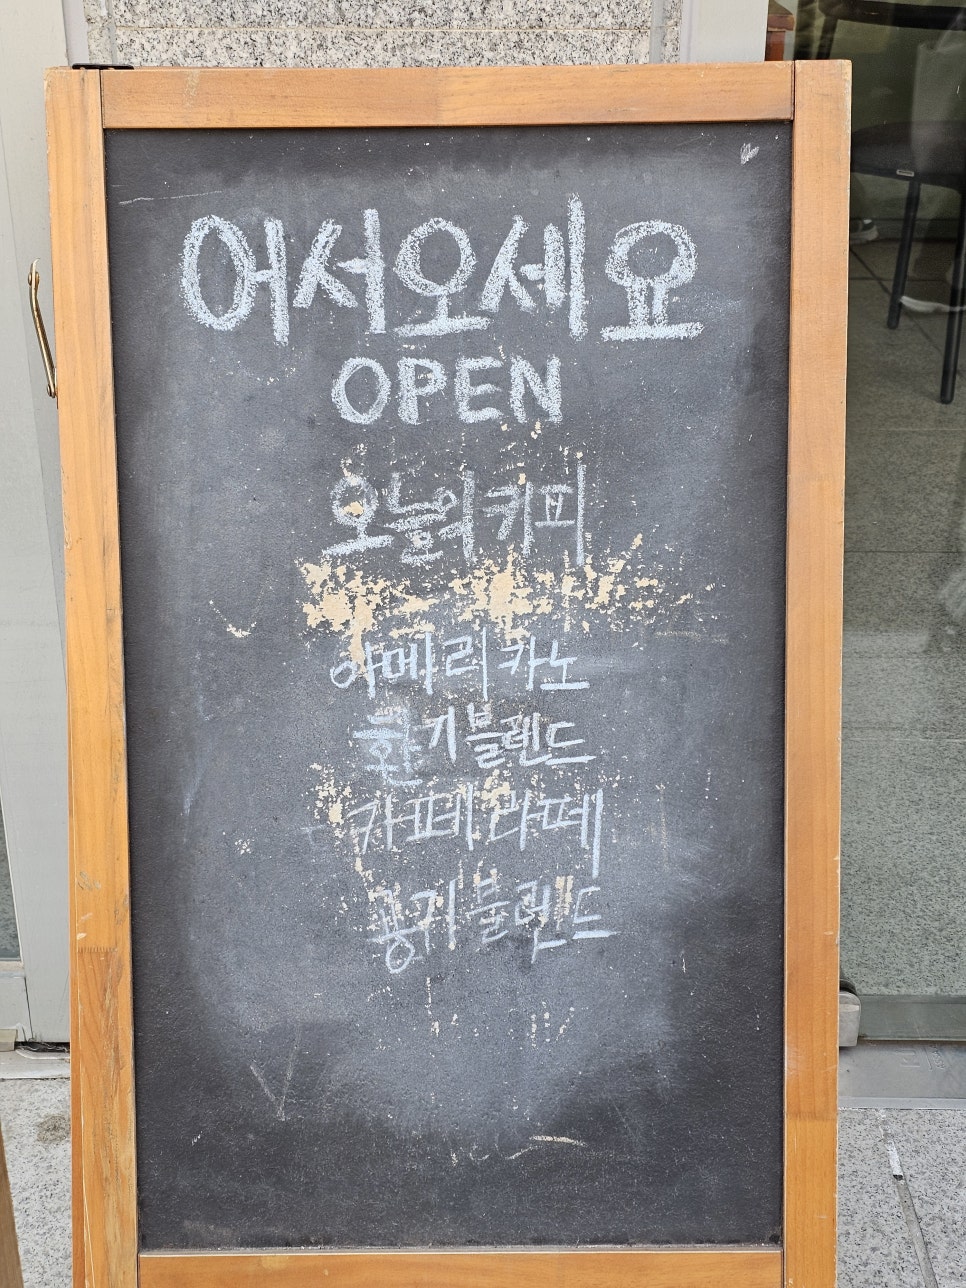 어서오세요
OPEN
오늘의 커피
아메리카노
환기블렌드
카페라떼
용기블렌드